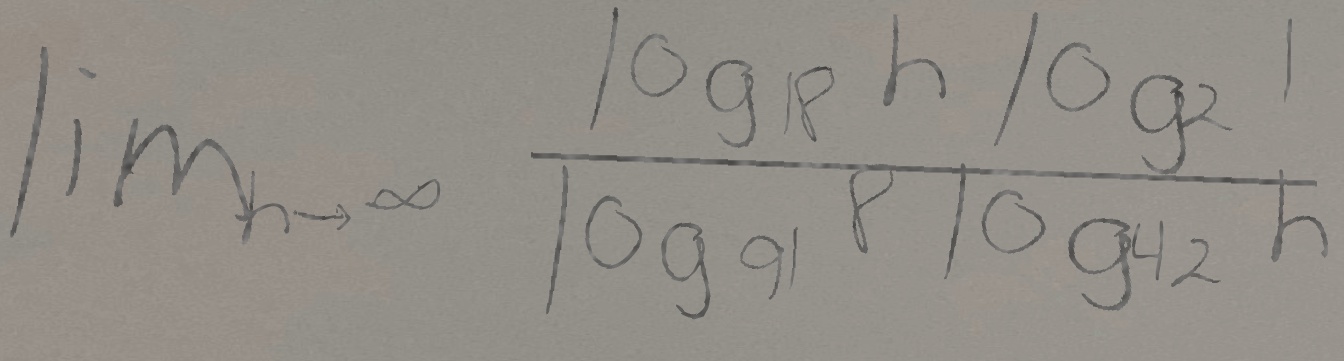 lim_{h→∞} \frac{log_{18} h log_{2} 1}{log_{91} 8 log_{42} h}